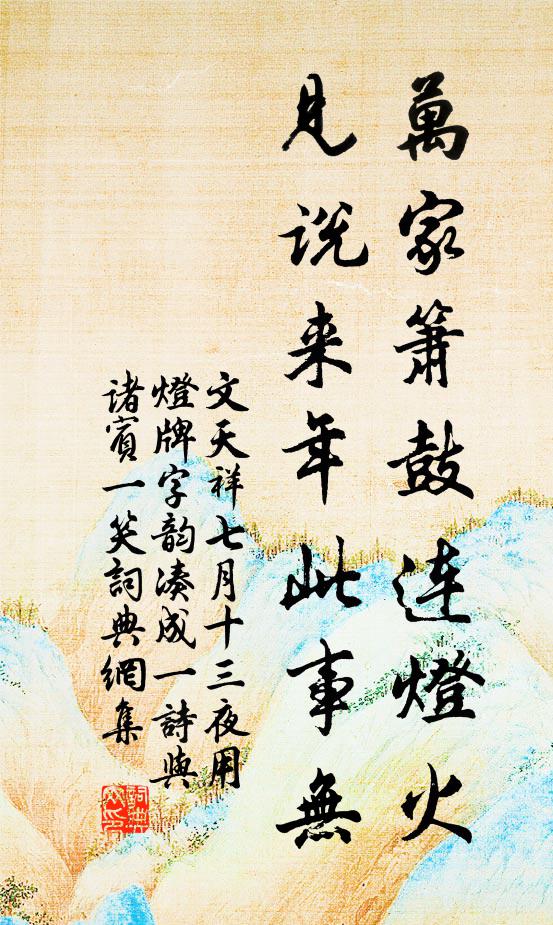 萬家簫鼓连燈火
见说来年此事無
文天祥七月十三夜用
燈牌字韵凑成一詩與
诸賓一笑詞典網集